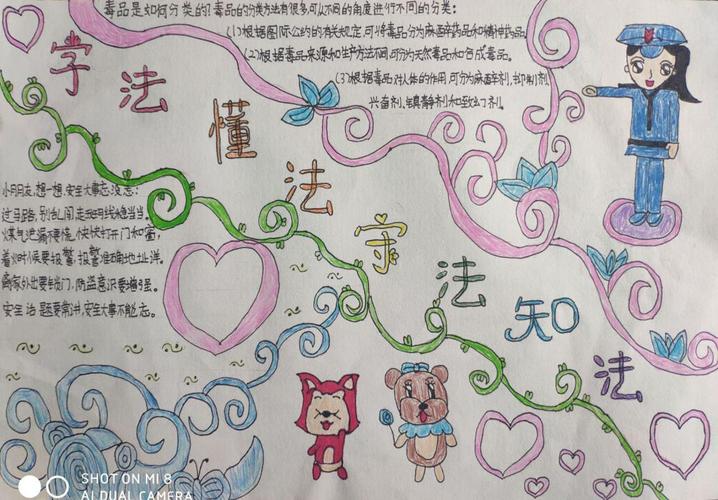 毒品是如何分类的?毒品的分类方法有很多可以不同的角度进行不同的分类:
(1)根据国际公约的有关规定,可将毒品分为麻醉药品和精神药品。
(2)根据毒品来源和生产方法不同,可分为天然毒品和合成毒品。
(3)根据毒品对人体的作用,可分为麻醉剂,抑制剂,
兴奋剂、镇静剂和致幻剂。
学法懂法守法知法
小朋友,想一想,安全大事忘没忘:
过马路,别乱闯走斑马线稳当当。
煤气泄漏不要慌,快快打开门和窗,
着火时候要报警,报警准确地址详。
离家外出要锁门,防盗意识要增强。
安全话题要常讲,安全大事不能忘。
SHOT ON MI 8
AI DUAL CAMERA